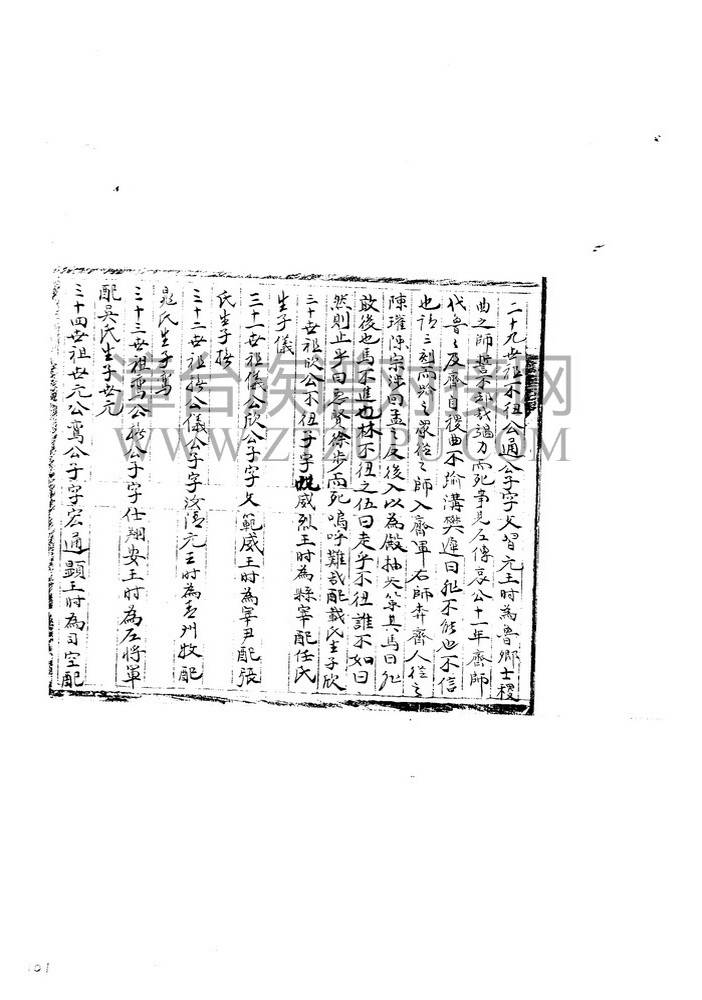 二十九世祖不狃公通公子字文習元王时為魯鄉士稷
曲之師誓不却哉竭力而死事見左傳哀公十一年齋師
代魯魯及齊自稷曲不逾溝樊遲曰非不能也不信
也請三刻而踰之眾從之師入齋軍右師奔齊人從之
陳瓘陳宗涉曰孟之反後入以為殿抽矢策其馬曰非
敢後也馬不進也林不狃之伍曰走乎不狃誰不如曰
然則止乎曰惡賢徐步而死嗚呼難哉配載氏生子欣
三十世祖欣公不狃子字 威烈王时為縣宰配任氏
生子儀
三十一世祖儀公欣公子字文範威王时為宰尹配張
氏生子括
三十二世祖括公儀公子字汝 元王时為青州牧配
晁氏生子鸞
三十三世祖鸞公括公子字仕翔安王时為左將軍
配吳氏生子世元
三十四世祖世元公鸞公子字宏通顯王时為司空配
津台族譜對接网
WWW.ZTZUPU.COM
101